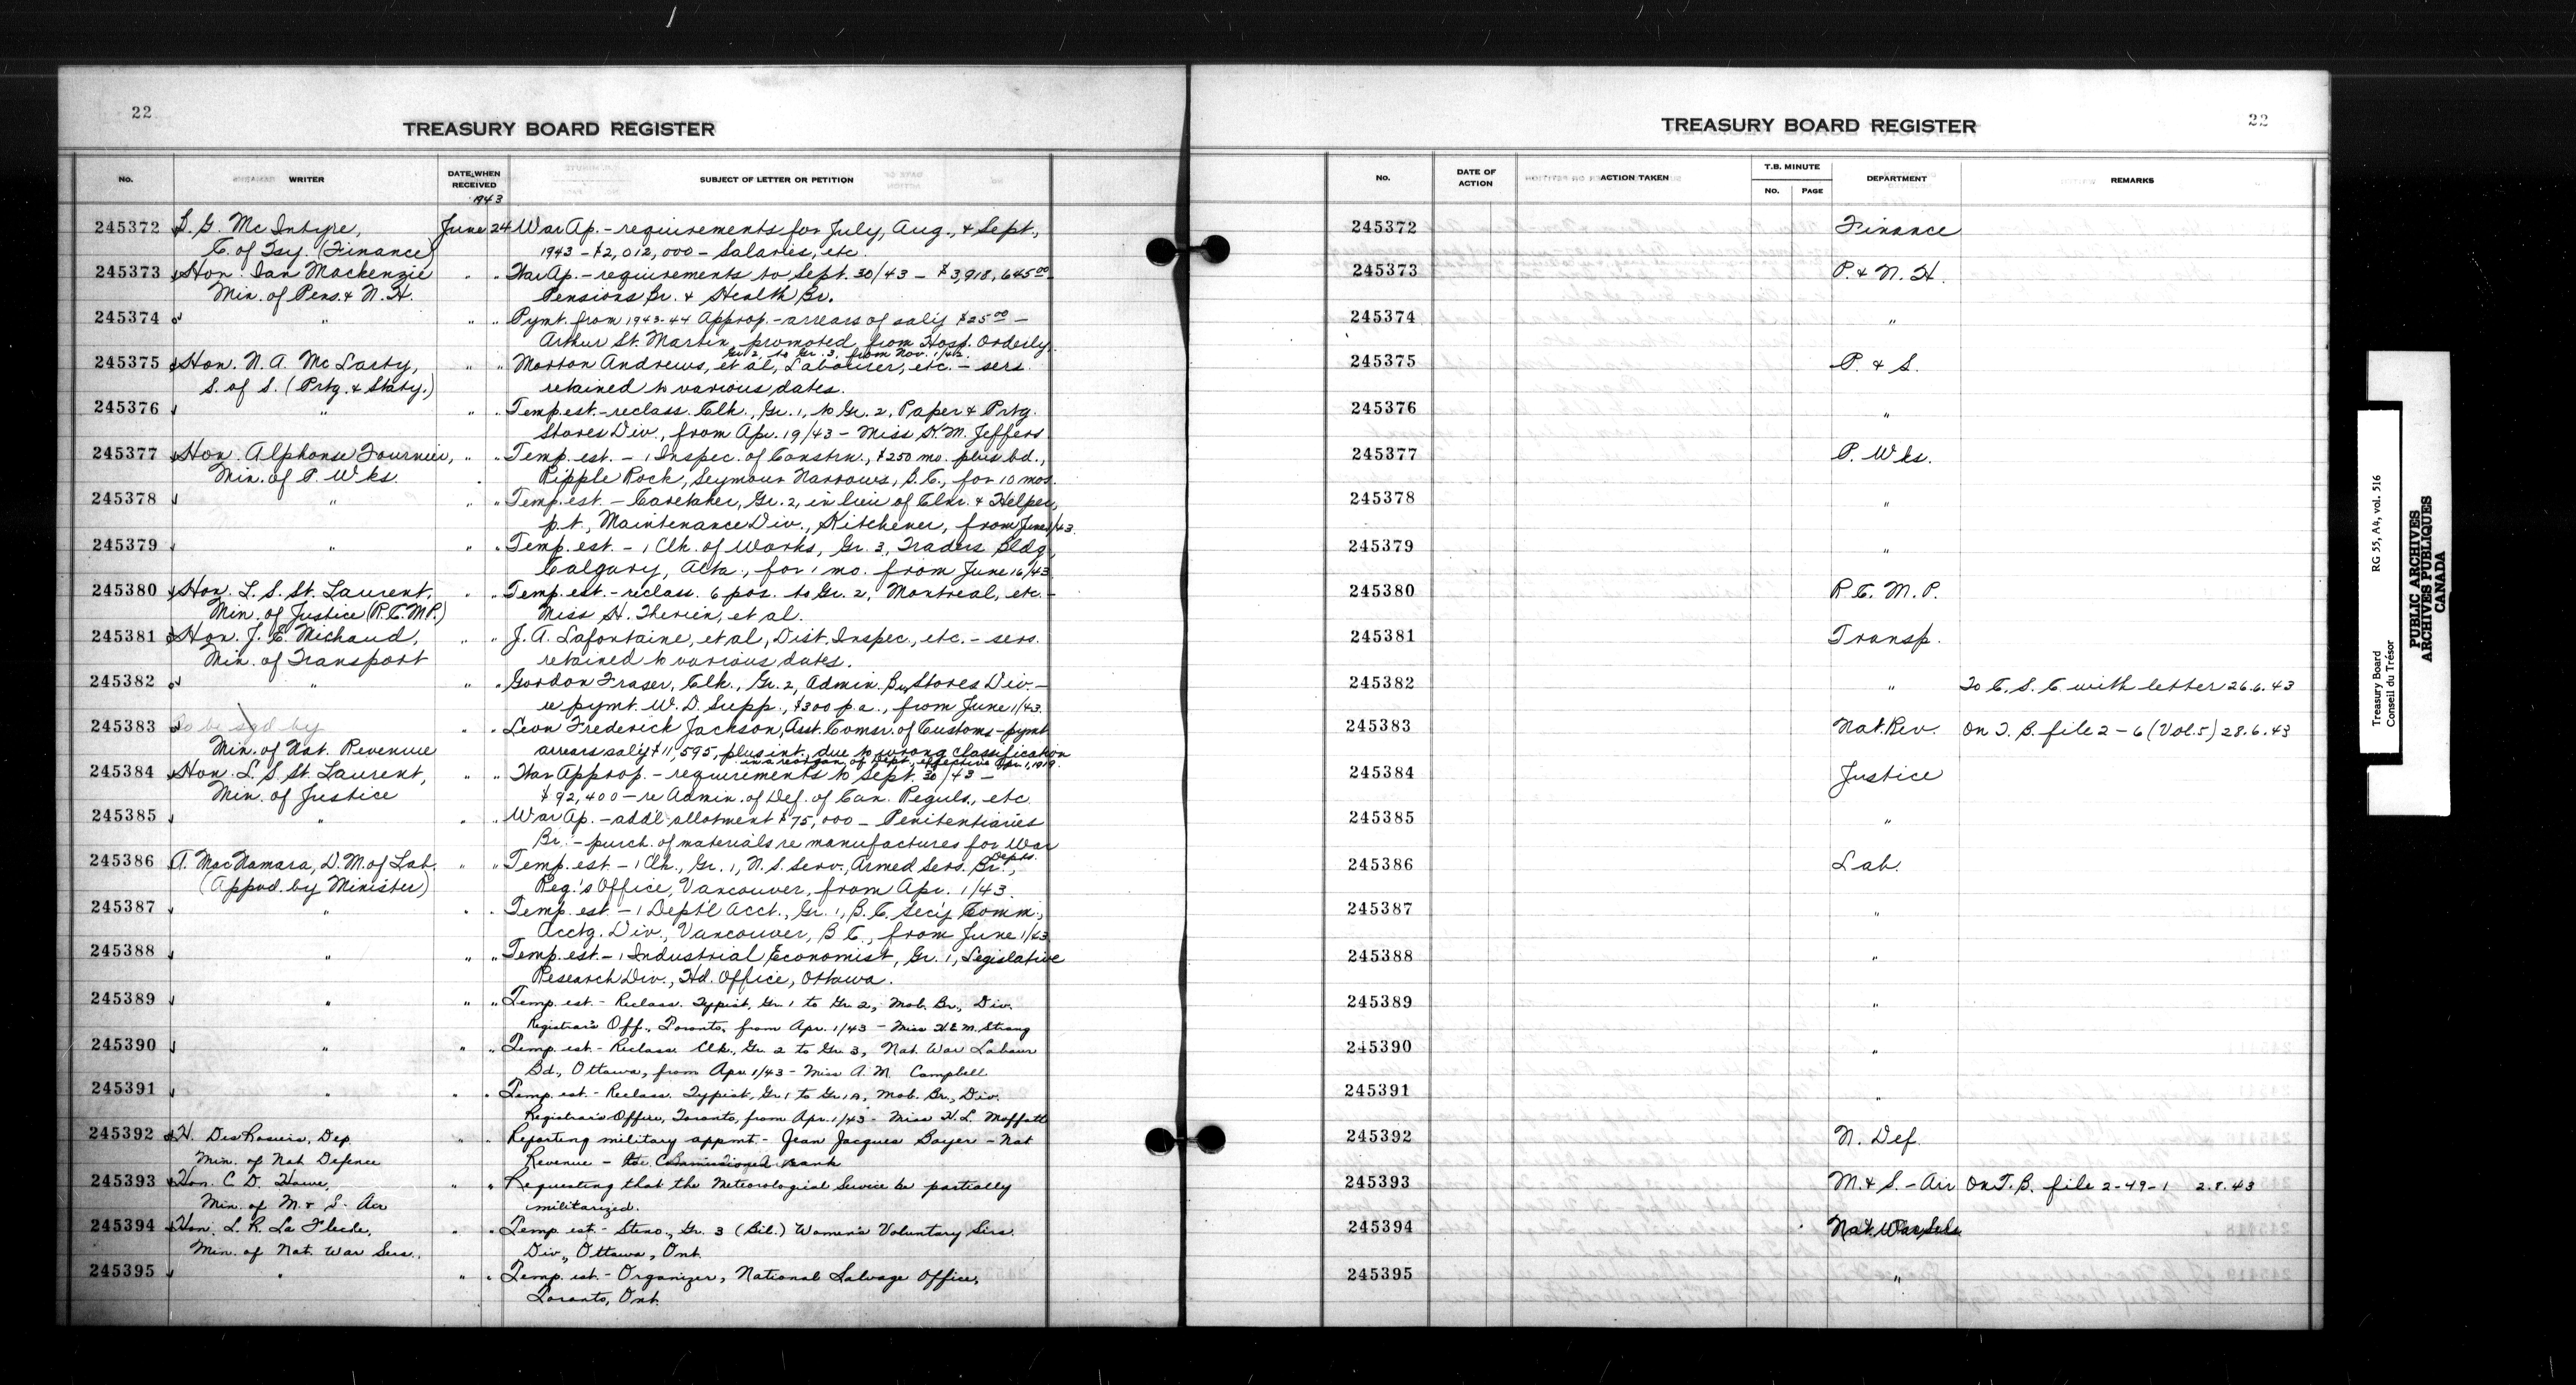 22
TREASURY BOARD REGISTER
No.
WRITER
DATE WHEN RECEIVED
1943
SUBJECT OF LETTER OR PETITION
245372 B. G. McIntyre, June 24 War Ap. - requirements for July, Aug., & Sept.,
C. of Tsy. (Finance) 1943 - $2,012,000 - Salaries, etc.
245373 Hon. Ian Mackenzie " " War Ap. - requirements to Sept. 30/43 - $3,918,645.00
Min. of Pens. & N.H. Pensions Br. & Health Br.
245374 " " " Pymt. from 1943-44 Approp. - arrears of sal'y $25.00 -
Arthur St. Martin, promoted from Hosp. Orderly
Gr. 2, to Gr. 3, from Nov. 1/42.
245375 Hon. N. A. McLarty, " " Morton Andrews, et al, Labourer, etc. - sers.
S. of S. (Prtg. & Staty.) retained to various dates.
245376 " " " Temp. est. - reclass. Clk., Gr. 1, to Gr. 2, Paper & Prtg.
Stores Div., from Apr. 19/43 - Miss K. M. Jeffers
245377 Hon. Alphonse Fournier, " " Temp. est. - 1 Inspec. of Constrn., $250 mo. plus bd.,
Min. of P. Wks. Ripple Rock, Seymour Narrows, B.C., for 10 mos.
245378 " " " Temp. est. - Caretaker, Gr. 2, in lieu of Clnr. & Helper,
p.t., Maintenance Div., Kitchener, from June 1/43.
245379 " " " Temp. est. - 1 Clk. of Works, Gr. 3, Traders Bldg.,
Calgary, Alta., for 1 mo. from June 16/43
245380 Hon. L. S. St. Laurent, " " Temp. est. - reclass. 6 pos. to Gr. 2, Montreal, etc. -
Min. of Justice (R.C.M.P.) Miss H. Therien, et al.
245381 Hon. J. E. Michaud, " " J. A. Lafontaine, et al, Dist. Inspec., etc. - sers.
Min. of Transport retained to various dates.
245382 " " " Gordon Fraser, Clk., Gr. 2, Admin. Br., Stores Div. -
re pymt. W. D. Supp., $300 p.a., from June 1/43.
245383 To be sgd by " " Leon Frederick Jackson, Asst. Comsr. of Customs - pymt
Min. of Nat. Revenue arrears sal'y $11,595, plus int., due to wrong classification
in a reorgan. of Dept., effective Apr. 1, 1919.
245384 Hon. L. S. St. Laurent, " " War Approp. - requirements to Sept. 30/43 -
Min. of Justice $92,400 - re Admin. of Def. of Can. Reguls., etc.
245385 " " " War Ap. - add'l allotment $75,000 - Penitentiaries
Br. - purch. of materials re manufactures for War
Depts.
245386 A. MacNamara, D. M. of Lab. " " Temp. est. - 1 Clk., Gr. 1, N. S. Serv., Armed Sers. Br.,
(Appvd. by Minister) Reg.'s Office, Vancouver, from Apr. 1/43.
245387 " " " Temp. est. - 1 Dept'l Acct., Gr. 1, B. C. Sec'y Comm.,
Acctg. Div., Vancouver, B. C., from June 1/43
245388 " " " Temp. est. - 1 Industrial Economist, Gr. 1, Legislative
Research Div., Hd. Office, Ottawa.
245389 " " " Temp. est. - Reclass. Typist, Gr. 1 to Gr. 2, Mob. Br., Div.
Registrar's Off., Toronto, from Apr. 1/43 - Miss H. E. M. Strong
245390 " " " Temp. est. - Reclass. Clk., Gr. 2 to Gr. 3, Nat. War Labour
Bd., Ottawa, from Apr. 1/43 - Miss A. M. Campbell
245391 " " " Temp. est. - Reclass. Typist, Gr. 1 to Gr. 1A, Mob. Br., Div.
Registrar's Office, Toronto, from Apr. 1/43 - Miss H. L. Moffatt
245392 H. DesRosiers, Dep. " " Reporting military appmt. - Jean Jacques Boyer - Nat
Min. of Nat. Defence Revenue - Commissioned rank
245393 Hon. C. D. Howe, " " Requesting that the Meteorological Service be partially
Min. of M. & S. - Air militarized.
245394 Hon. L. R. La Fleche, " " Temp. est. - Steno., Gr. 3 (Bil.) Women's Voluntary Sers.
Min. of Nat. War Sers. Div., Ottawa, Ont.
245395 " " " Temp. est. - Organizer, National Salvage Office,
Toronto, Ont.
TREASURY BOARD REGISTER
22
No.
DATE OF ACTION
ACTION TAKEN
T.B. MINUTE
No.
PAGE
DEPARTMENT
REMARKS
245372 Finance
245373 P. & N. H.
245374 "
245375 P. & S.
245376 "
245377 P. Wks.
245378 "
245379 "
245380 R. C. M. P.
245381 Transp.
245382 " To C. S. C. with letter 26.6.43
245383 Nat. Rev. On T. B. file 2-6 (Vol. 5) 28.6.43
245384 Justice
245385 "
245386 Lab.
245387 "
245388 "
245389 "
245390 "
245391 "
245392 N. Def.
245393 M. & S. - Air On T. B. file 2-49-1 2.8.43
245394 Nat. War Sers
245395 "
Treasury Board RG 55, A4, vol. 516
Conseil du Trésor
PUBLIC ARCHIVES
ARCHIVES PUBLIQUES
CANADA